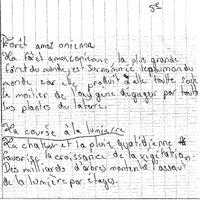 5e
Forêt amazonienne
La forêt amazonienne, la plus grande
forêt du monde, est surnommée le poumon du
monde car elle produit à elle toute seule
la moitié de l'oxygène dégagé par toute
les plantes du la terre.
La course à la lumière
La chaleur et la pluie quotidienne
favorise la croissance de la végétation.
Des milliards d'arbres montent à l'assaut
de la lumière par étages.